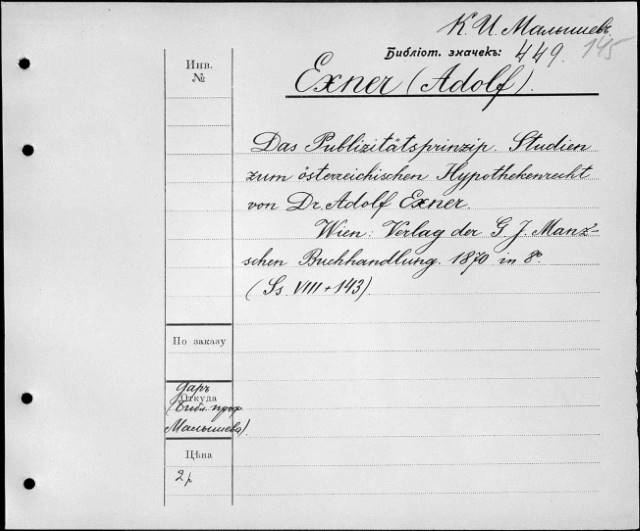 К. И. Малышевъ
Библіот. значекъ: 449. 145
Инв.
№
Exner (Adolf).
Das Publizitätsprinzip. Studien
zum österreichischen Hypothekenrecht
von Dr. Adolf Exner.
Wien: Verlag der G. J. Manz-
schen Buchhandlung. 1870 in 8º
(Ss. VIII + 143).
По заказу
Даръ
Откуда
(Библ. проф.
Малышева).
Цѣна
2 р